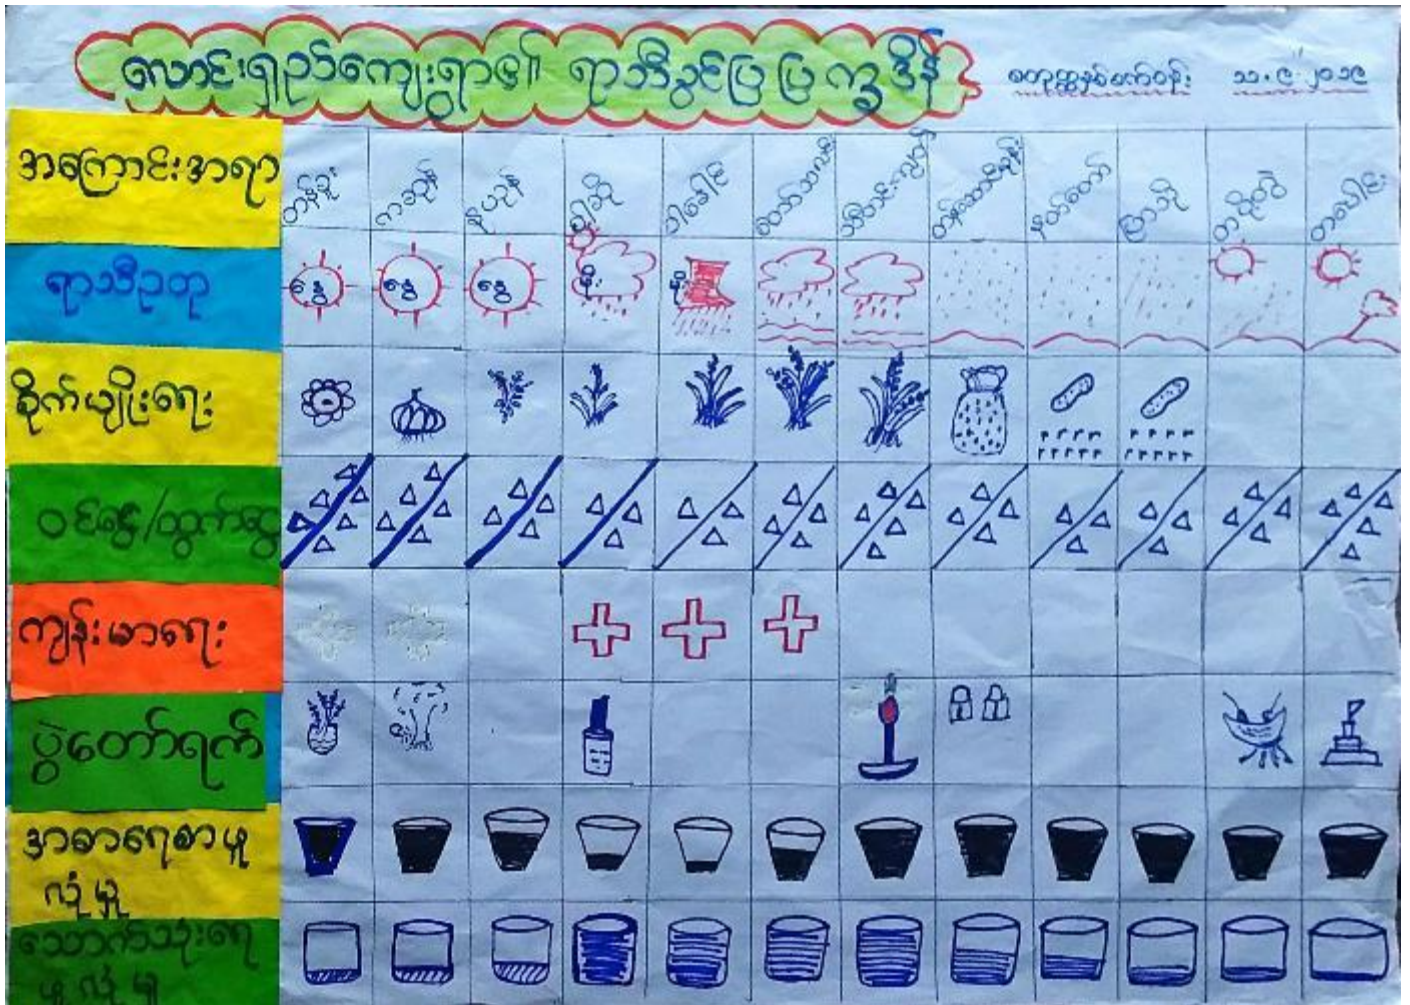 လောင်းရှည်ကျေးရွာ၏ ရာသီခွင်ပြ ပြက္ခဒိန်
စတုတ္ထနှစ်စက်ဝန်း ၁၁.၉.၂၀၁၉
အကြောင်းအရာ တန်ခူး ကဆုန် နယုန် ဝါဆို ဝါခေါင် တော်သလင်း သီတင်းကျွတ် တန်ဆောင်မုန်း နတ်တော် ပြာသို တပို့တွဲ တပေါင်း
ရာသီဥတု နွေ နွေ နွေ မိုး မိုး
စိုက်ပျိုးရေး
ဝင်ငွေ/ထွက်ငွေ
ကျန်းမာရေး
ပွဲတော်ရက်
အစာရေစာဖူ
လုံမှု
သောက်သုံးရေ
ဖူလုံမှု